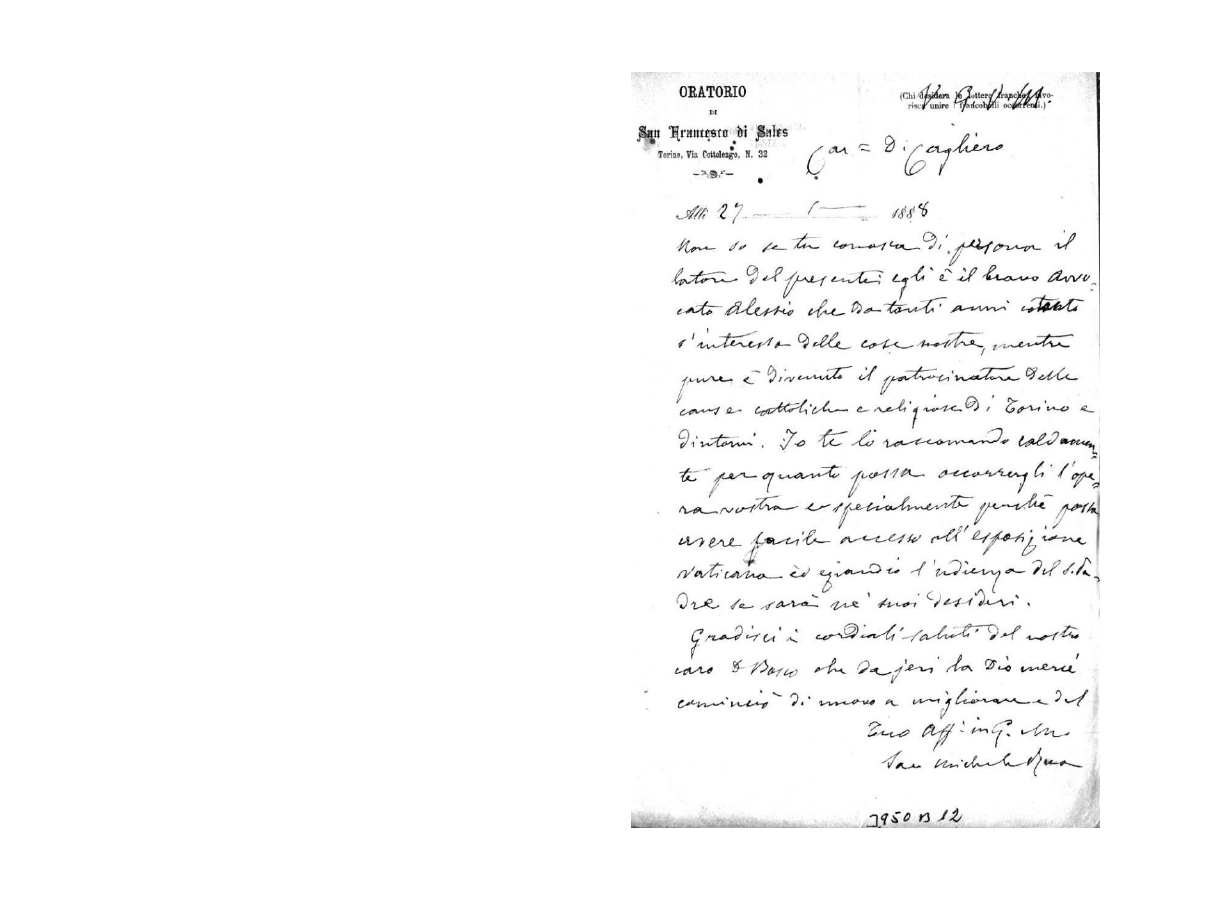 ORATORIO
DI
San Francesco di Sales
Torino, Via Cottolengo, N. 32
(Chi desidera le lettere franche, favo-
risca unire i francobolli occorrenti.)
Car = D. Cagliero
Alli 27 1 1888
Non so se tu conosca di persona il
latore del presente: egli è il bravo Avvo-
cato Alessio che da tanti anni
s'interessa delle cose nostre, mentre
pure è divenuto il patrocinatore delle
cause cattoliche e religiose di Torino e
dintorni. Io te lo raccomando caldamen-
te per quanto possa occorrergli l'ope-
ra vostra e specialmente perchè possa
avere facile accesso all'esposizione
Vaticana ed eziandio l'udienza del S. Pa-
dre se sarà ne' suoi desideri.
Gradisci i cordiali saluti del nostro
caro D Bosco che da jeri la Dio mercè
cominciò di nuovo a migliorare e del
Tuo Aff. in G. e M.
Sac Michele Rua
3950 B 12